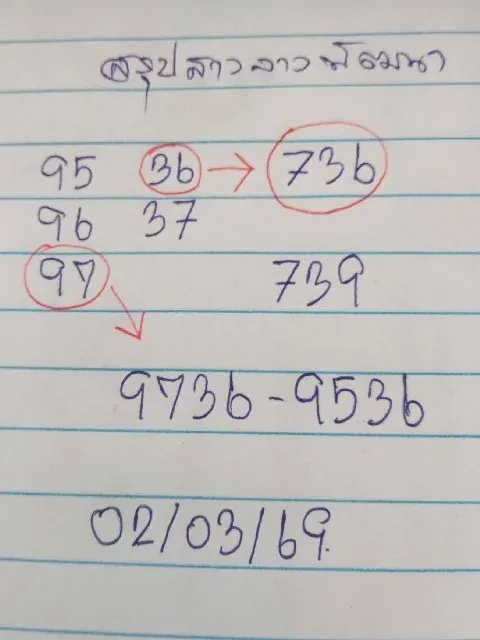 สรุปลาวลาวพัฒนา
95 36 → 736
96 37
97 739
9736-9536
02/03/69.